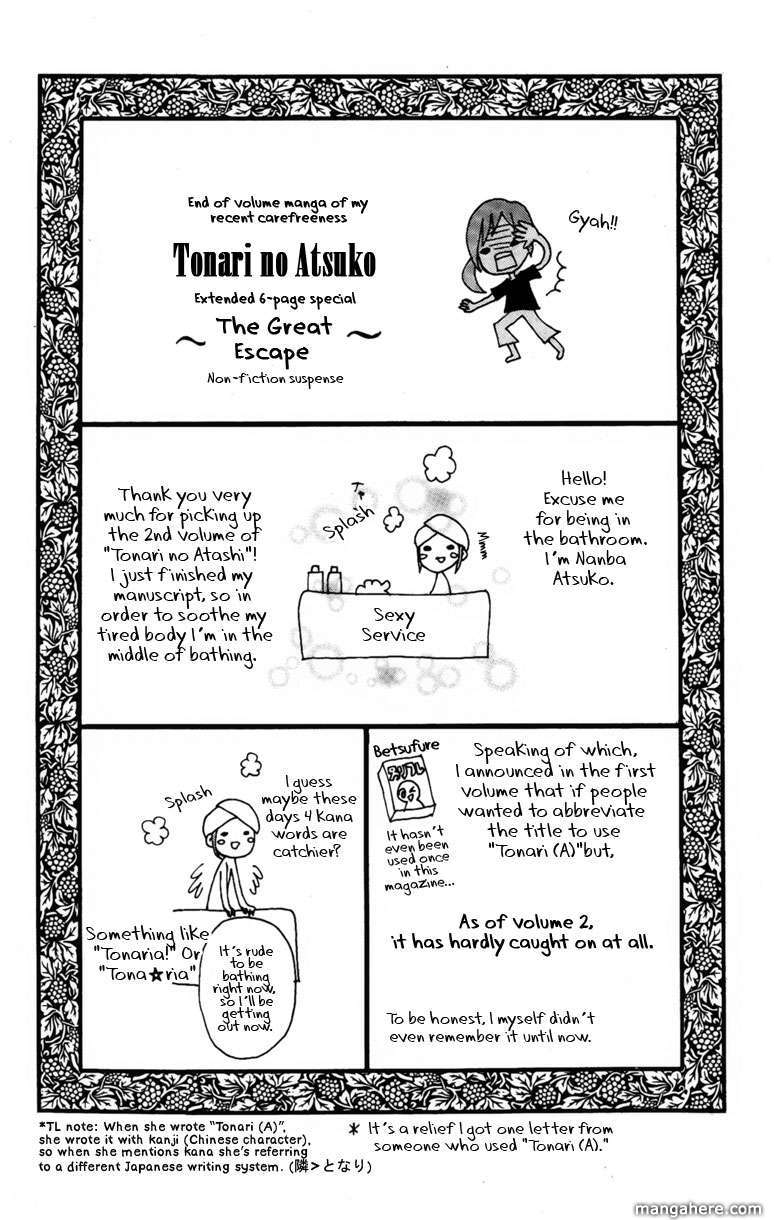 End of volume manga of my
recent carefreeness
Tonari no Atsuko
Extended 6-page special
~ The Great ~
Escape
Non-fiction suspense
Gyah!!
Hello!
Excuse me
for being in
the bathroom.
I'm Nanba
Atsuko.
Splash
Mmm
Sexy
Service
Thank you very
much for picking up
the 2nd volume of
"Tonari no Atashi"!
I just finished my
manuscript, so in
order to soothe my
tired body I'm in the
middle of bathing.
Speaking of which,
I announced in the first
volume that if people
wanted to abbreviate
the title to use
"Tonari (A)" but,
Betsufure
It hasn't
even been
used once
in this
magazine...
As of volume 2,
it has hardly caught on at all.
To be honest, I myself didn't
even remember it until now.
I guess
maybe these
days 4 kana
words are
catchier?
Splash
Something like
"Tonaria!" Or
"Tona★ria"
It's rude
to be
bathing
right now,
so I'll be
getting
out now.
*TL note: When she wrote "Tonari (A)",
she wrote it with kanji (Chinese character),
so when she mentions kana she's referring
to a different Japanese writing system. (隣>となり)
* It's a relief I got one letter from
someone who used "Tonari (A)."
mangahere.com